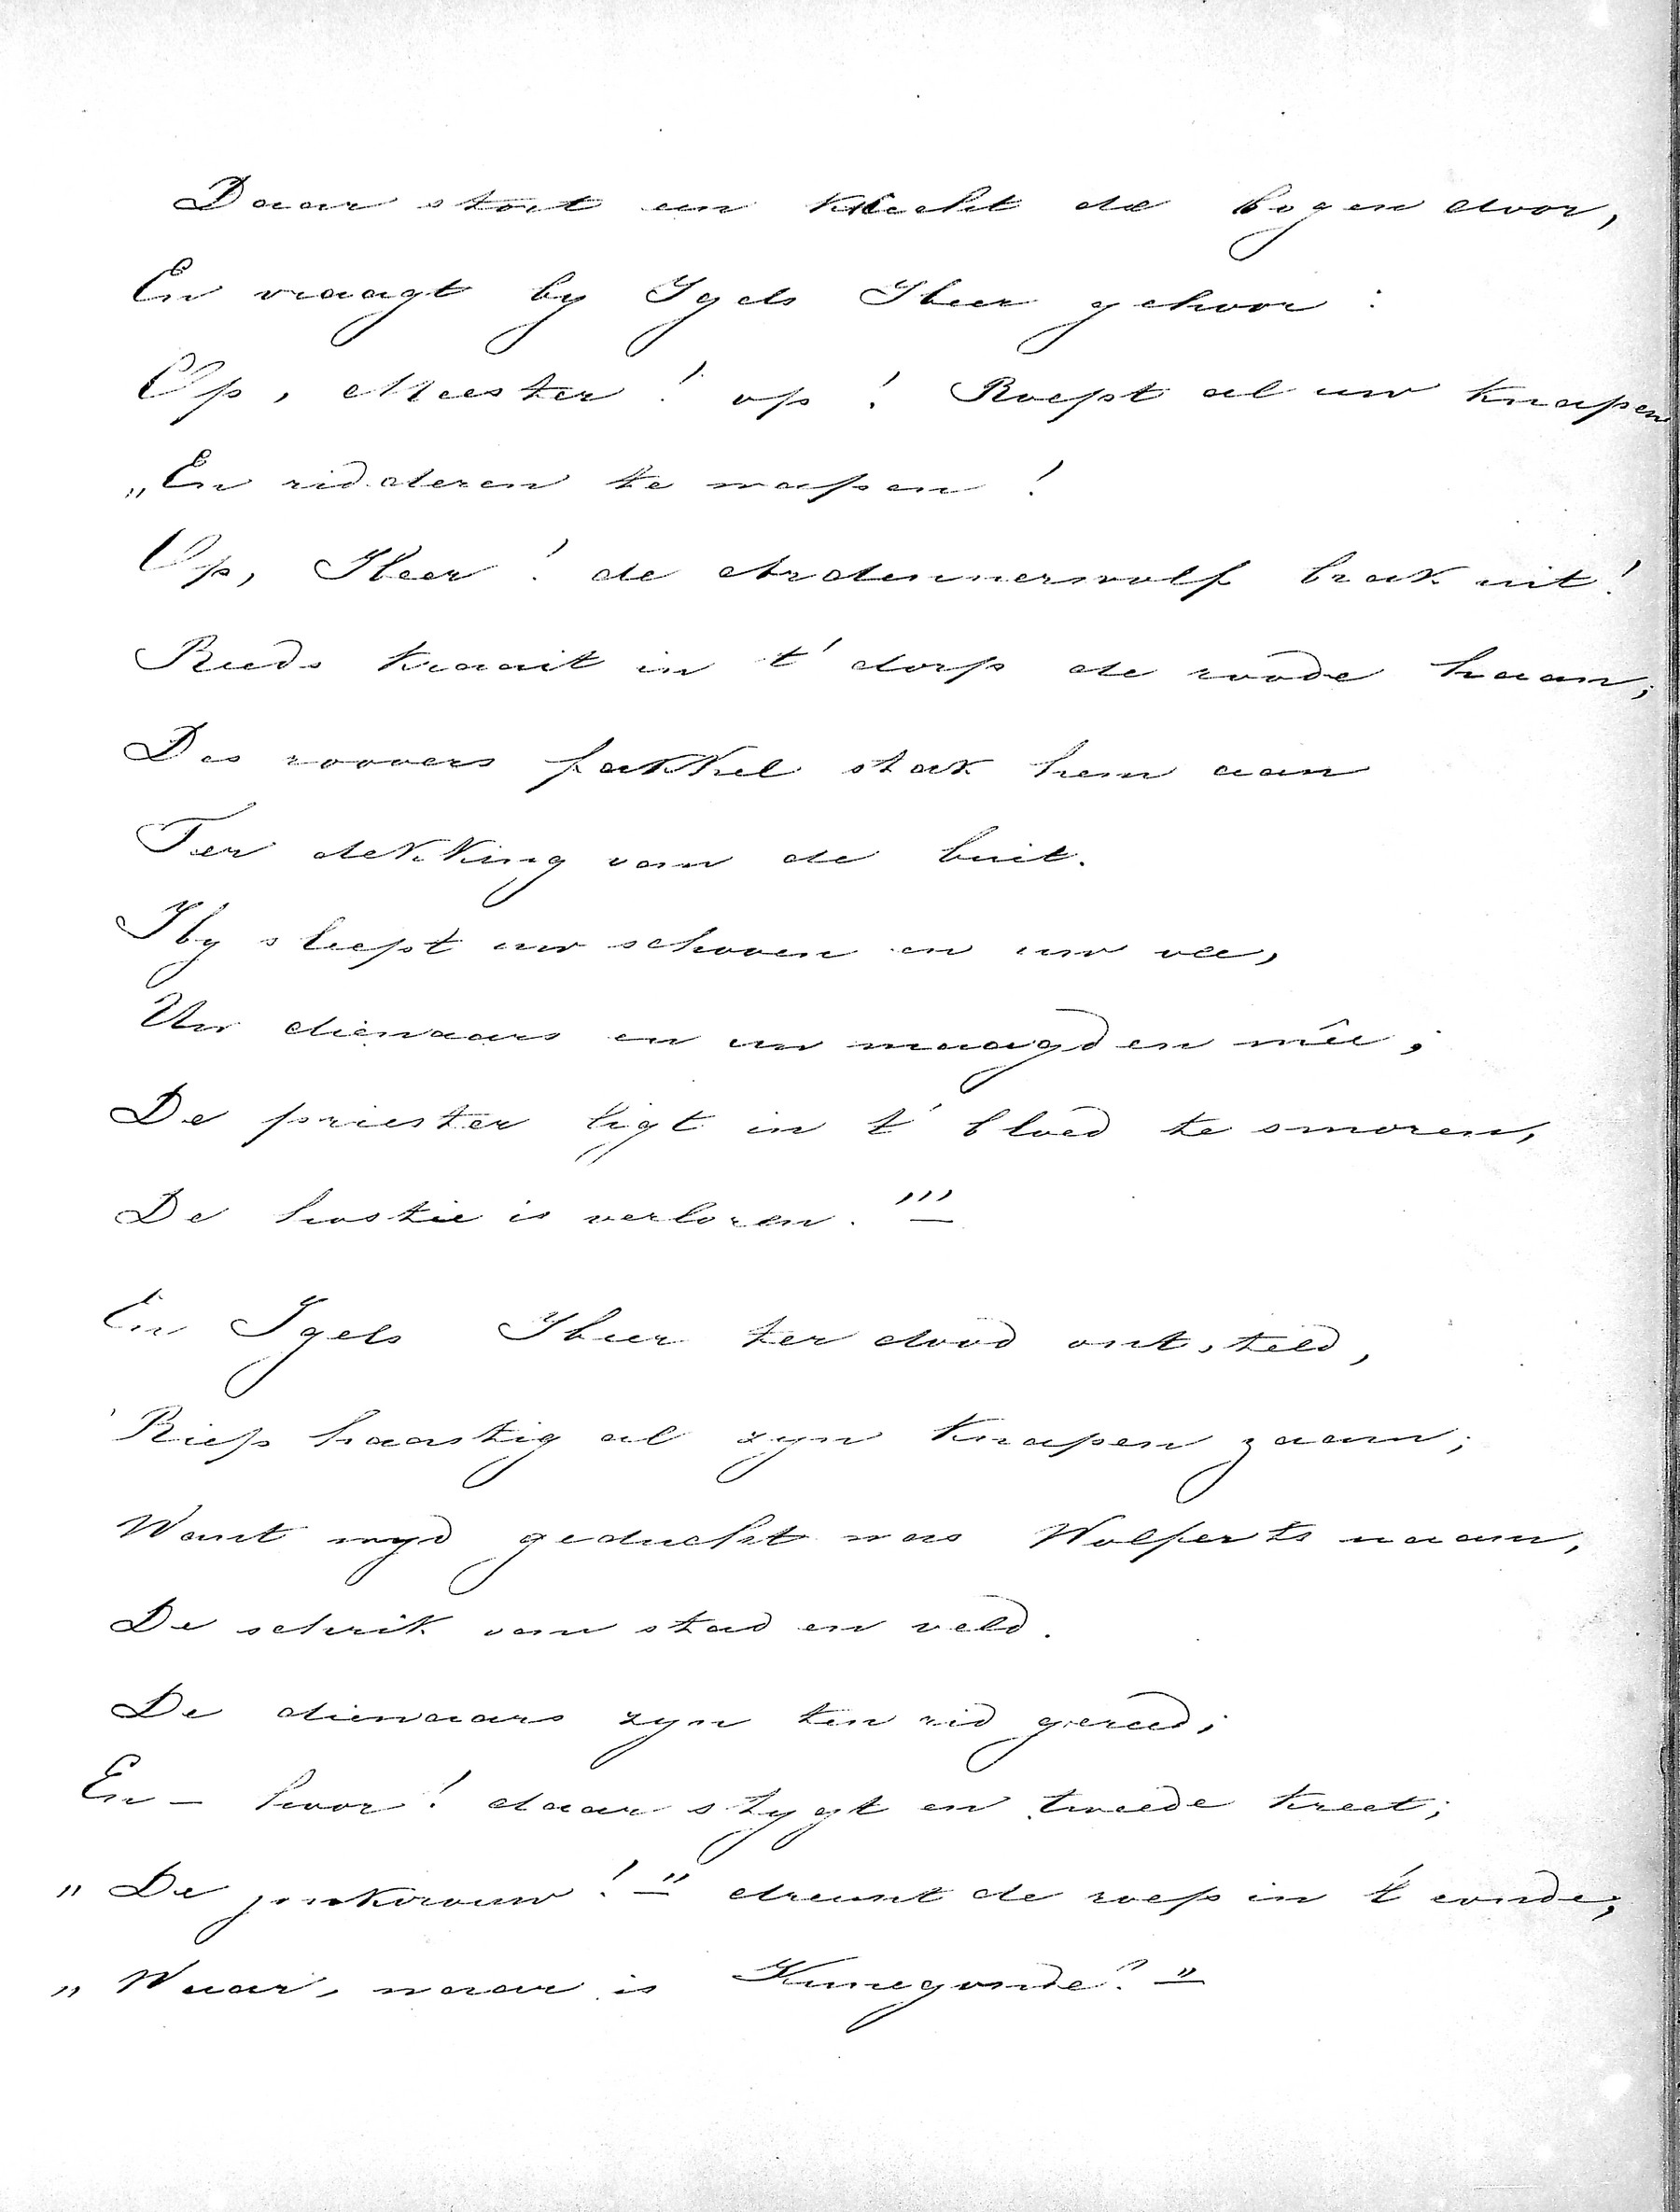 Daar stort een knecht de bogen door,
En vraagt by Igels Heer gehoor :
Op, Meester ! op ! Roept al uw knapen
„En ridderen te wapen !
Op, Heer ! de Ardennerwolf brak uit !
Reeds kraait in t' dorp de roode haan;
Des roovers fakkel stak hem aan
Ter dekking van de buit.
Hy sleept uw schoven en uw vee,
Uw dienaars en uw maagden mêe ;
De priester ligt in t' bloed te smoren,
De hostie is verloren. '''
En Igels Heer ter dood ontsteld,
Riep haastig al zyn knapen zaam;
Want wyd geducht was Wolferts naam,
De schrik van stad en veld.
De dienaars zyn ten rid gereed;
En – hoor ! daar stygt en tweede kreet;
„ De jonkvrouw ! " dreunt de roep in t' ronde;
„ Waar, waar is Kunegonde? "